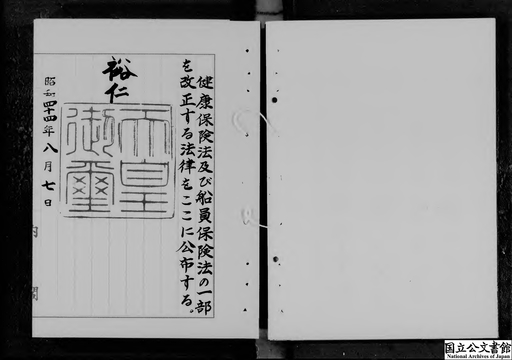 健康保険法及び船員保険法の一部
を改正する法律をここに公布する。
裕仁
天皇
御璽
昭和四十四年八月七日
内閣
国立公文書館
National Archives of Japan